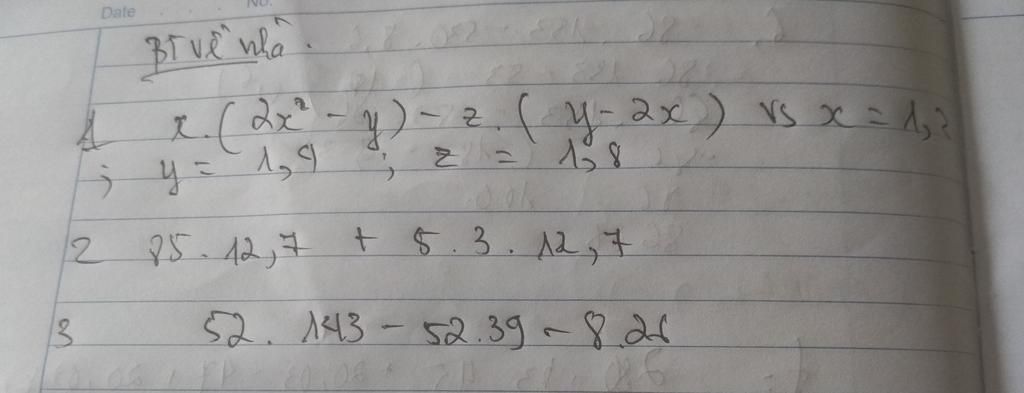 Date No.
BT về nhà.
1 x.(2x² - y) - z.(y - 2x) vs x = 1,2
; y = 1,9 ; z = 1,8
2 85.12,7 + 5.3.12,7
3 52.143 - 52.39 - 8.26